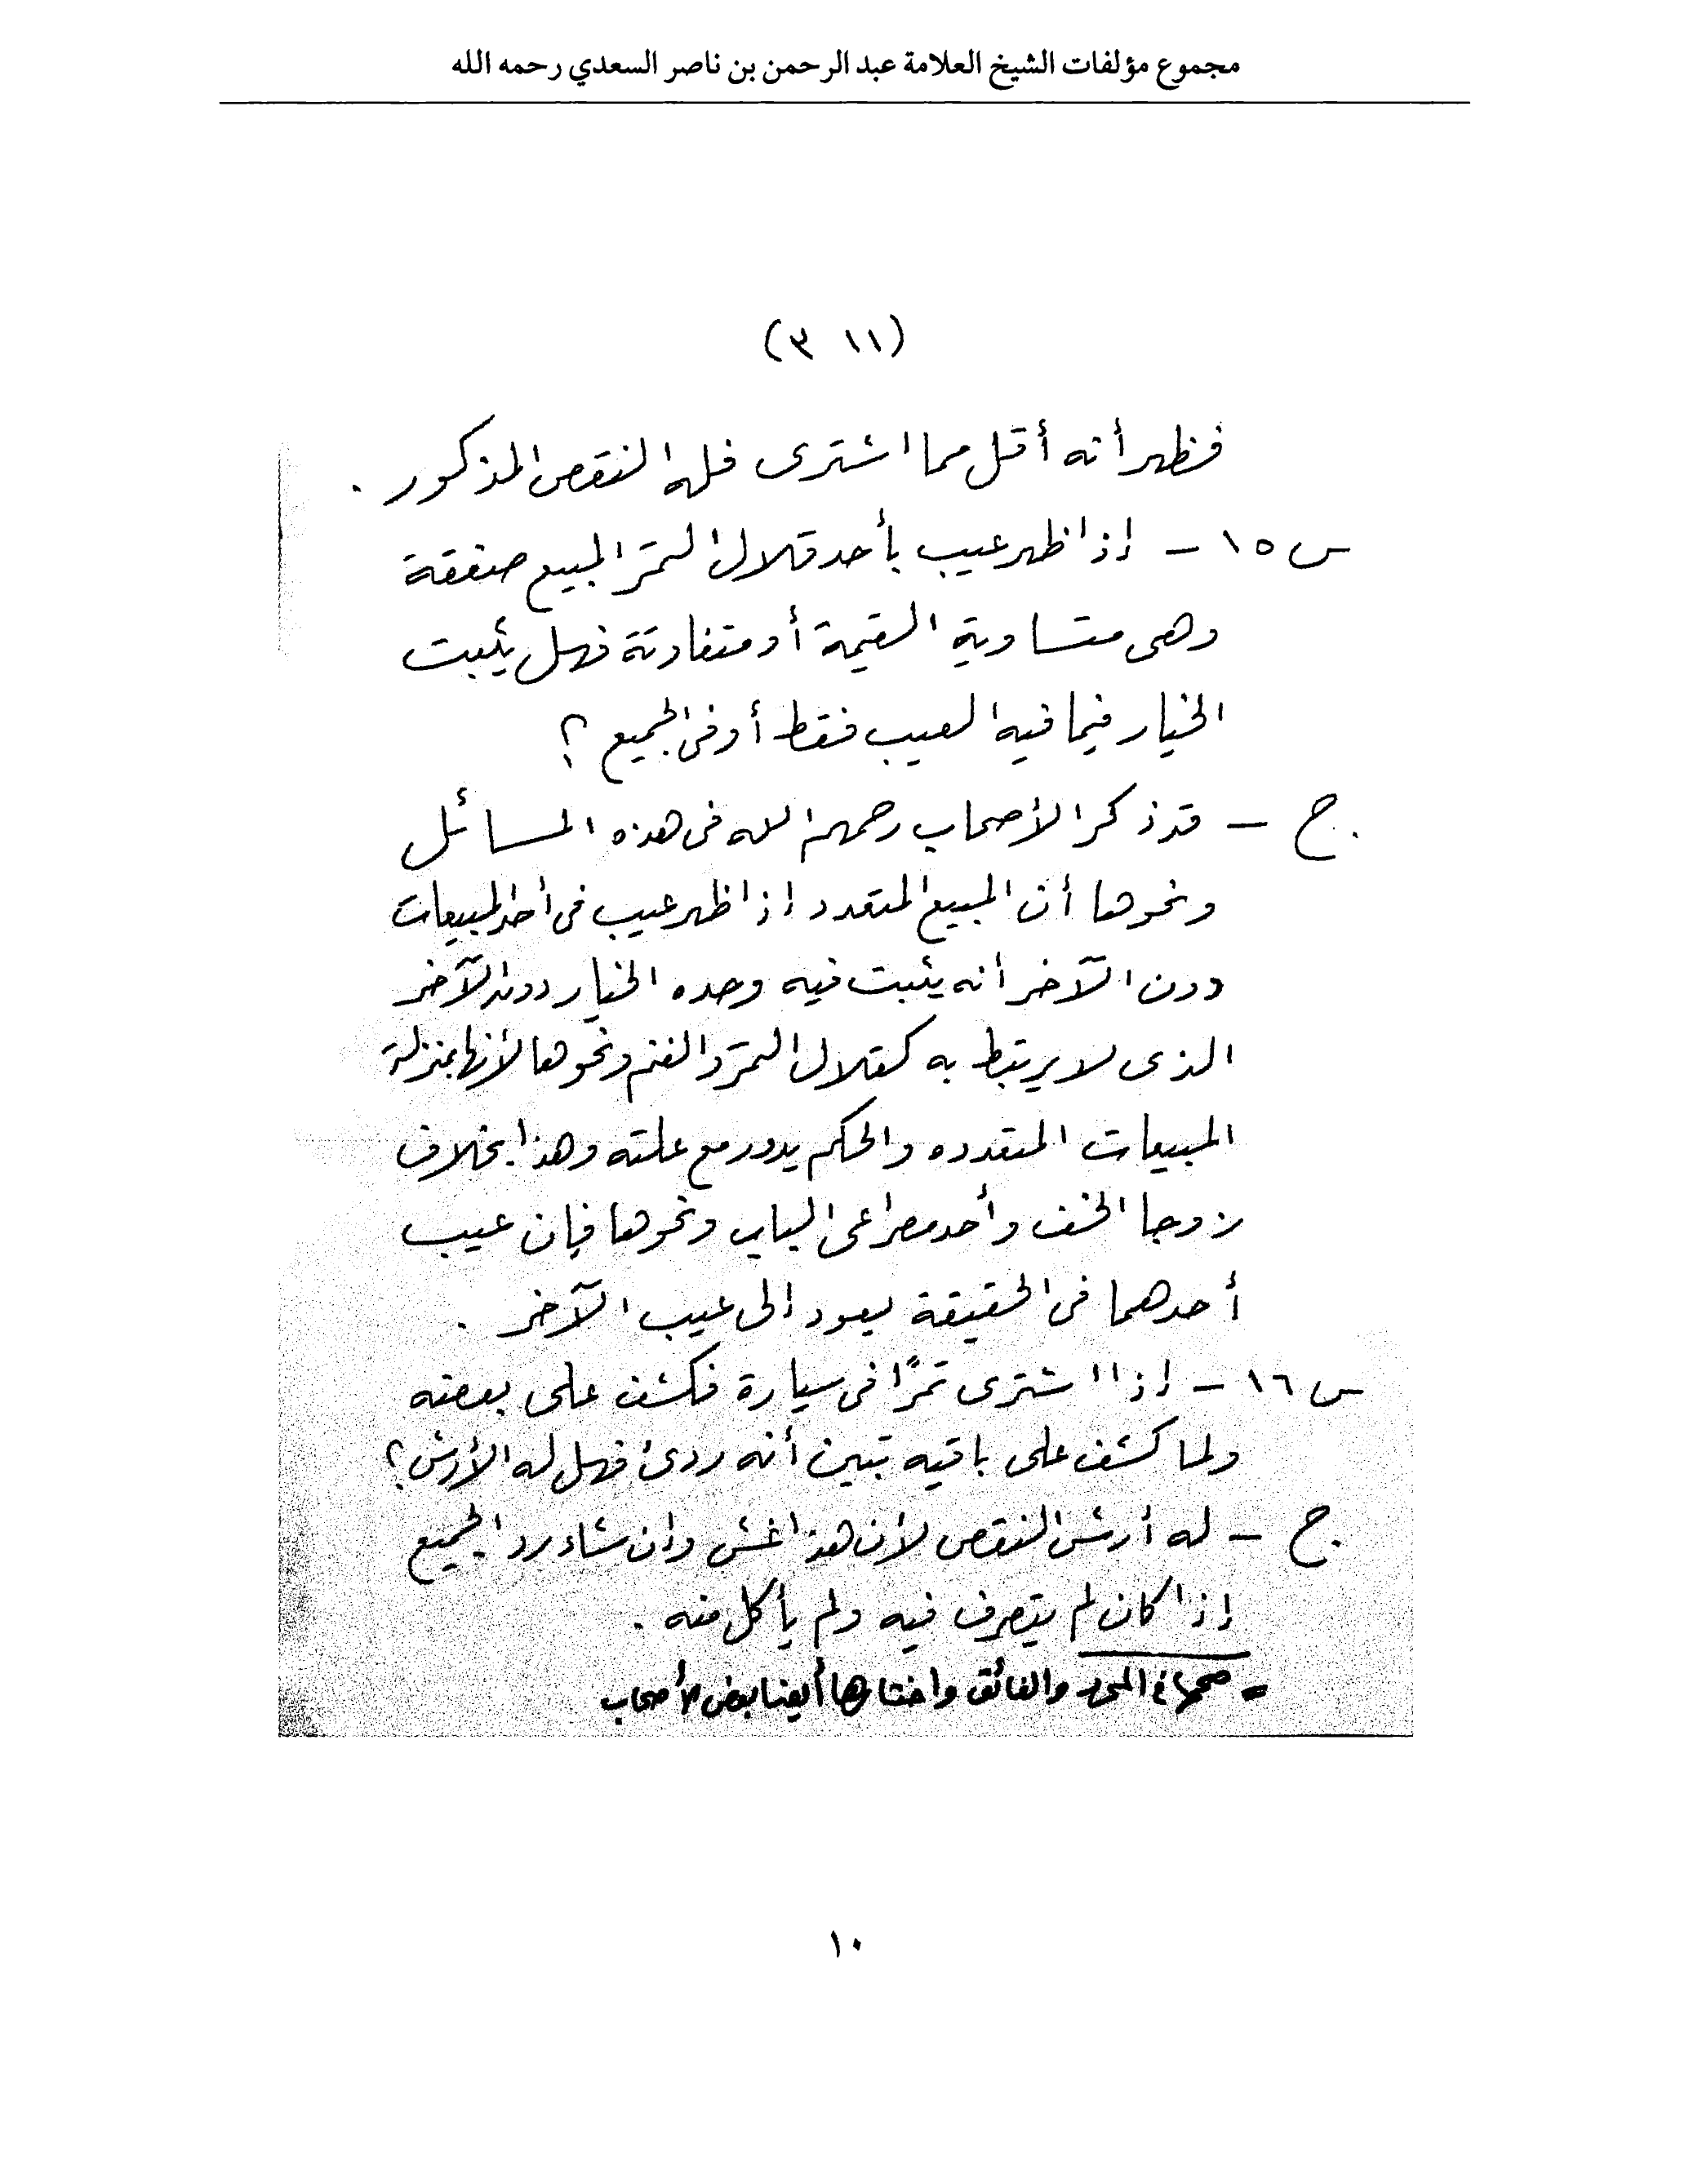 مجموع مؤلفات الشيخ العلامة عبد الرحمن بن ناصر السعدي رحمه الله
(١١ ٣)
فظهر أنه أقل مما اشترى فله النقص المذكور .
س ١٥ – إذا ظهر عيب بأحد قلال التمر المبيع صفقة
وهى متساوية القيمة أو متفاوتة فهل يثبت
الخيار فيما فيه العيب فقط أو فى الجميع ؟
ج – قد ذكر الأصحاب رحمهم الله فى هذه المسائل
ونحوها أن المبيع المتعدد إذا ظهر عيب فى أحد المبيعات
دون الآخر أنه يثبت فيه وحده الخيار دون الآخر
الذى لا يرتبط به كقلال التمر والغنم ونحوها لأنها بمنزلة
المبيعات المتعدده والحكم يدور مع علته وهذا بخلاف
زوجا الخف وأحد مصراعى الباب ونحوها فإن عيب
أحدهما فى الحقيقة يعود إلى عيب الآخر .
س ١٦ – إذا اشترى تمرًا فى سيارة فكشف على بعضه
ولما كشف على باقيه تبين أنه ردئ فهل له الأرش ؟
ج – له أرش النقص لأن هذا غش وإن شاء رد الجميع
إذا كان لم يتصرف فيه ولم يأكل منه .
= صححها فى المحرر والفائق واختارها أيضا بعض الأصحاب
١٠